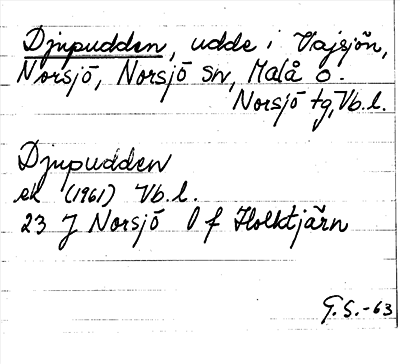 Djupudden, udde i Vajsjön,
Norsjö, Norsjö sn, Malå o.
Norsjö tg, Vb.l.
Djupudden
ek (1961) Vb.l.
23 J Norsjö 0 f Holktjärn
G.S.-63